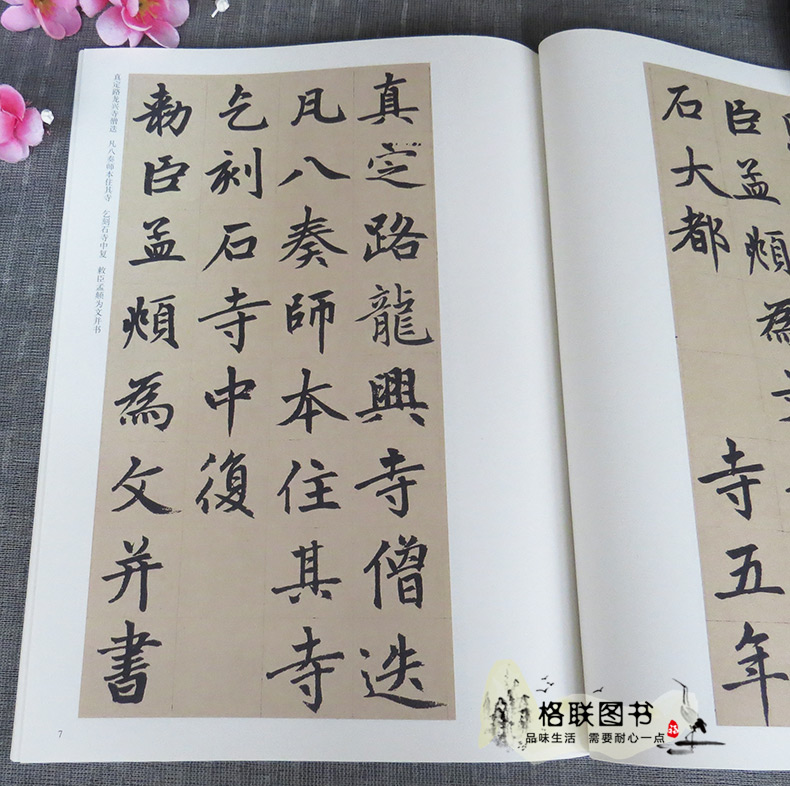 臣孟頫為
石大都 寺五年
真定路龍興寺僧迭
凡八奏師本住其寺
乞刻石寺中復
勑臣孟頫為文并書
真定路龙兴寺僧迭 凡八奏师本住其寺 乞刻石寺中复 敕臣孟頫为文并书
7
格联图书
品味生活 需要耐心一点